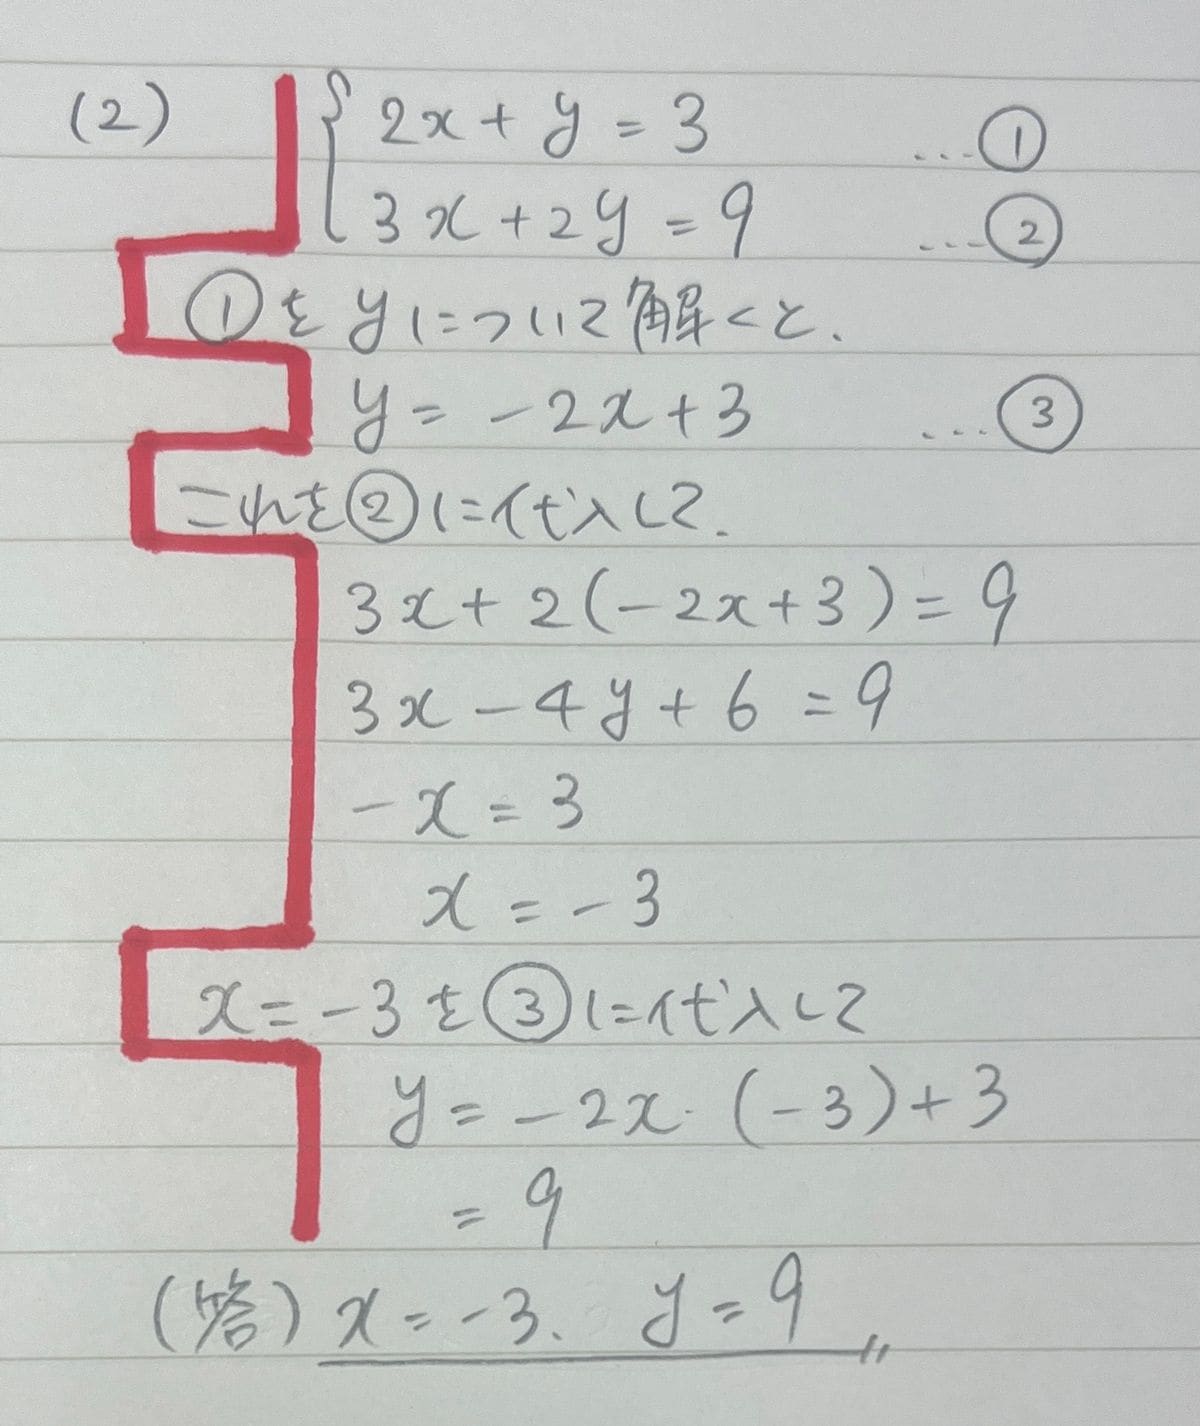 (2) { 2x + y = 3 ...①
3x + 2y = 9 ...②
①をyについて解くと、
y = -2x + 3 ...③
これを②に代入して、
3x + 2(-2x + 3) = 9
3x - 4y + 6 = 9
-x = 3
x = -3
x = -3を③に代入して
y = -2x・(-3) + 3
= 9
(答) x = -3、 y = 9 〃